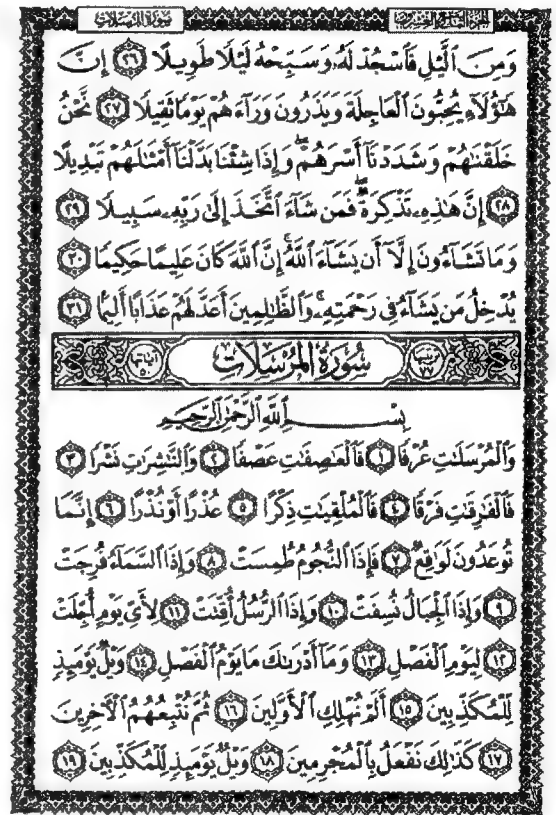 الجزء التاسع والعشرون
سورة المرسلات
وَمِنَ ٱلَّيۡلِ فَٱسۡجُدۡ لَهُۥ وَسَبِّحۡهُ لَيۡلٗا طَوِيلًا ٢٦ إِنَّ
هَٰٓؤُلَآءِ يُحِبُّونَ ٱلۡعَاجِلَةَ وَيَذَرُونَ وَرَآءَهُمۡ يَوۡمٗا ثَقِيلٗا ٢٧ نَّحۡنُ
خَلَقۡنَٰهُمۡ وَشَدَدۡنَآ أَسۡرَهُمۡۖ وَإِذَا شِئۡنَا بَدَّلۡنَآ أَمۡثَٰلَهُمۡ تَبۡدِيلًا
٢٨ إِنَّ هَٰذِهِۦ تَذۡكِرَةٞۖ فَمَن شَآءَ ٱتَّخَذَ إِلَىٰ رَبِّهِۦ سَبِيلٗا ٢٩
وَمَا تَشَآءُونَ إِلَّآ أَن يَشَآءَ ٱللَّهُۚ إِنَّ ٱللَّهَ كَانَ عَلِيمًا حَكِيمٗا ٣٠
يُدۡخِلُ مَن يَشَآءُ فِي رَحۡمَتِهِۦۚ وَٱلظَّٰلِمِينَ أَعَدَّ لَهُمۡ عَذَابًا أَلِيمَۢا ٣١
ترتيبها ٧٧ سُورَةُ المُرْسَلَاتِ آياتها ٥٠
بِسۡمِ ٱللَّهِ ٱلرَّحۡمَٰنِ ٱلرَّحِيمِ
وَٱلۡمُرۡسَلَٰتِ عُرۡفٗا ١ فَٱلۡعَٰصِفَٰتِ عَصۡفٗا ٢ وَٱلنَّٰشِرَٰتِ نَشۡرٗا ٣
فَٱلۡفَٰرِقَٰتِ فَرۡقٗا ٤ فَٱلۡمُلۡقِيَٰتِ ذِكۡرًا ٥ عُذۡرًا أَوۡ نُذۡرًا ٦ إِنَّمَا
تُوعَدُونَ لَوَٰقِعٞ ٧ فَإِذَا ٱلنُّجُومُ طُمِسَتۡ ٨ وَإِذَا ٱلسَّمَآءُ فُرِجَتۡ
٩ وَإِذَا ٱلۡجِبَالُ نُسِفَتۡ ١٠ وَإِذَا ٱلرُّسُلُ أُقِّتَتۡ ١١ لِأَيِّ يَوۡمٍ أُجِّلَتۡ
١٢ لِيَوۡمِ ٱلۡفَصۡلِ ١٣ وَمَآ أَدۡرَىٰكَ مَا يَوۡمُ ٱلۡفَصۡلِ ١٤ وَيۡلٞ يَوۡمَئِذٖ
لِّلۡمُكَذِّبِينَ ١٥ أَلَمۡ نُهۡلِكِ ٱلۡأَوَّلِينَ ١٦ ثُمَّ نُتۡبِعُهُمُ ٱلۡأٓخِرِينَ
١٧ كَذَٰلِكَ نَفۡعَلُ بِٱلۡمُجۡرِمِينَ ١٨ وَيۡلٞ يَوۡمَئِذٖ لِّلۡمُكَذِّبِينَ ١٩